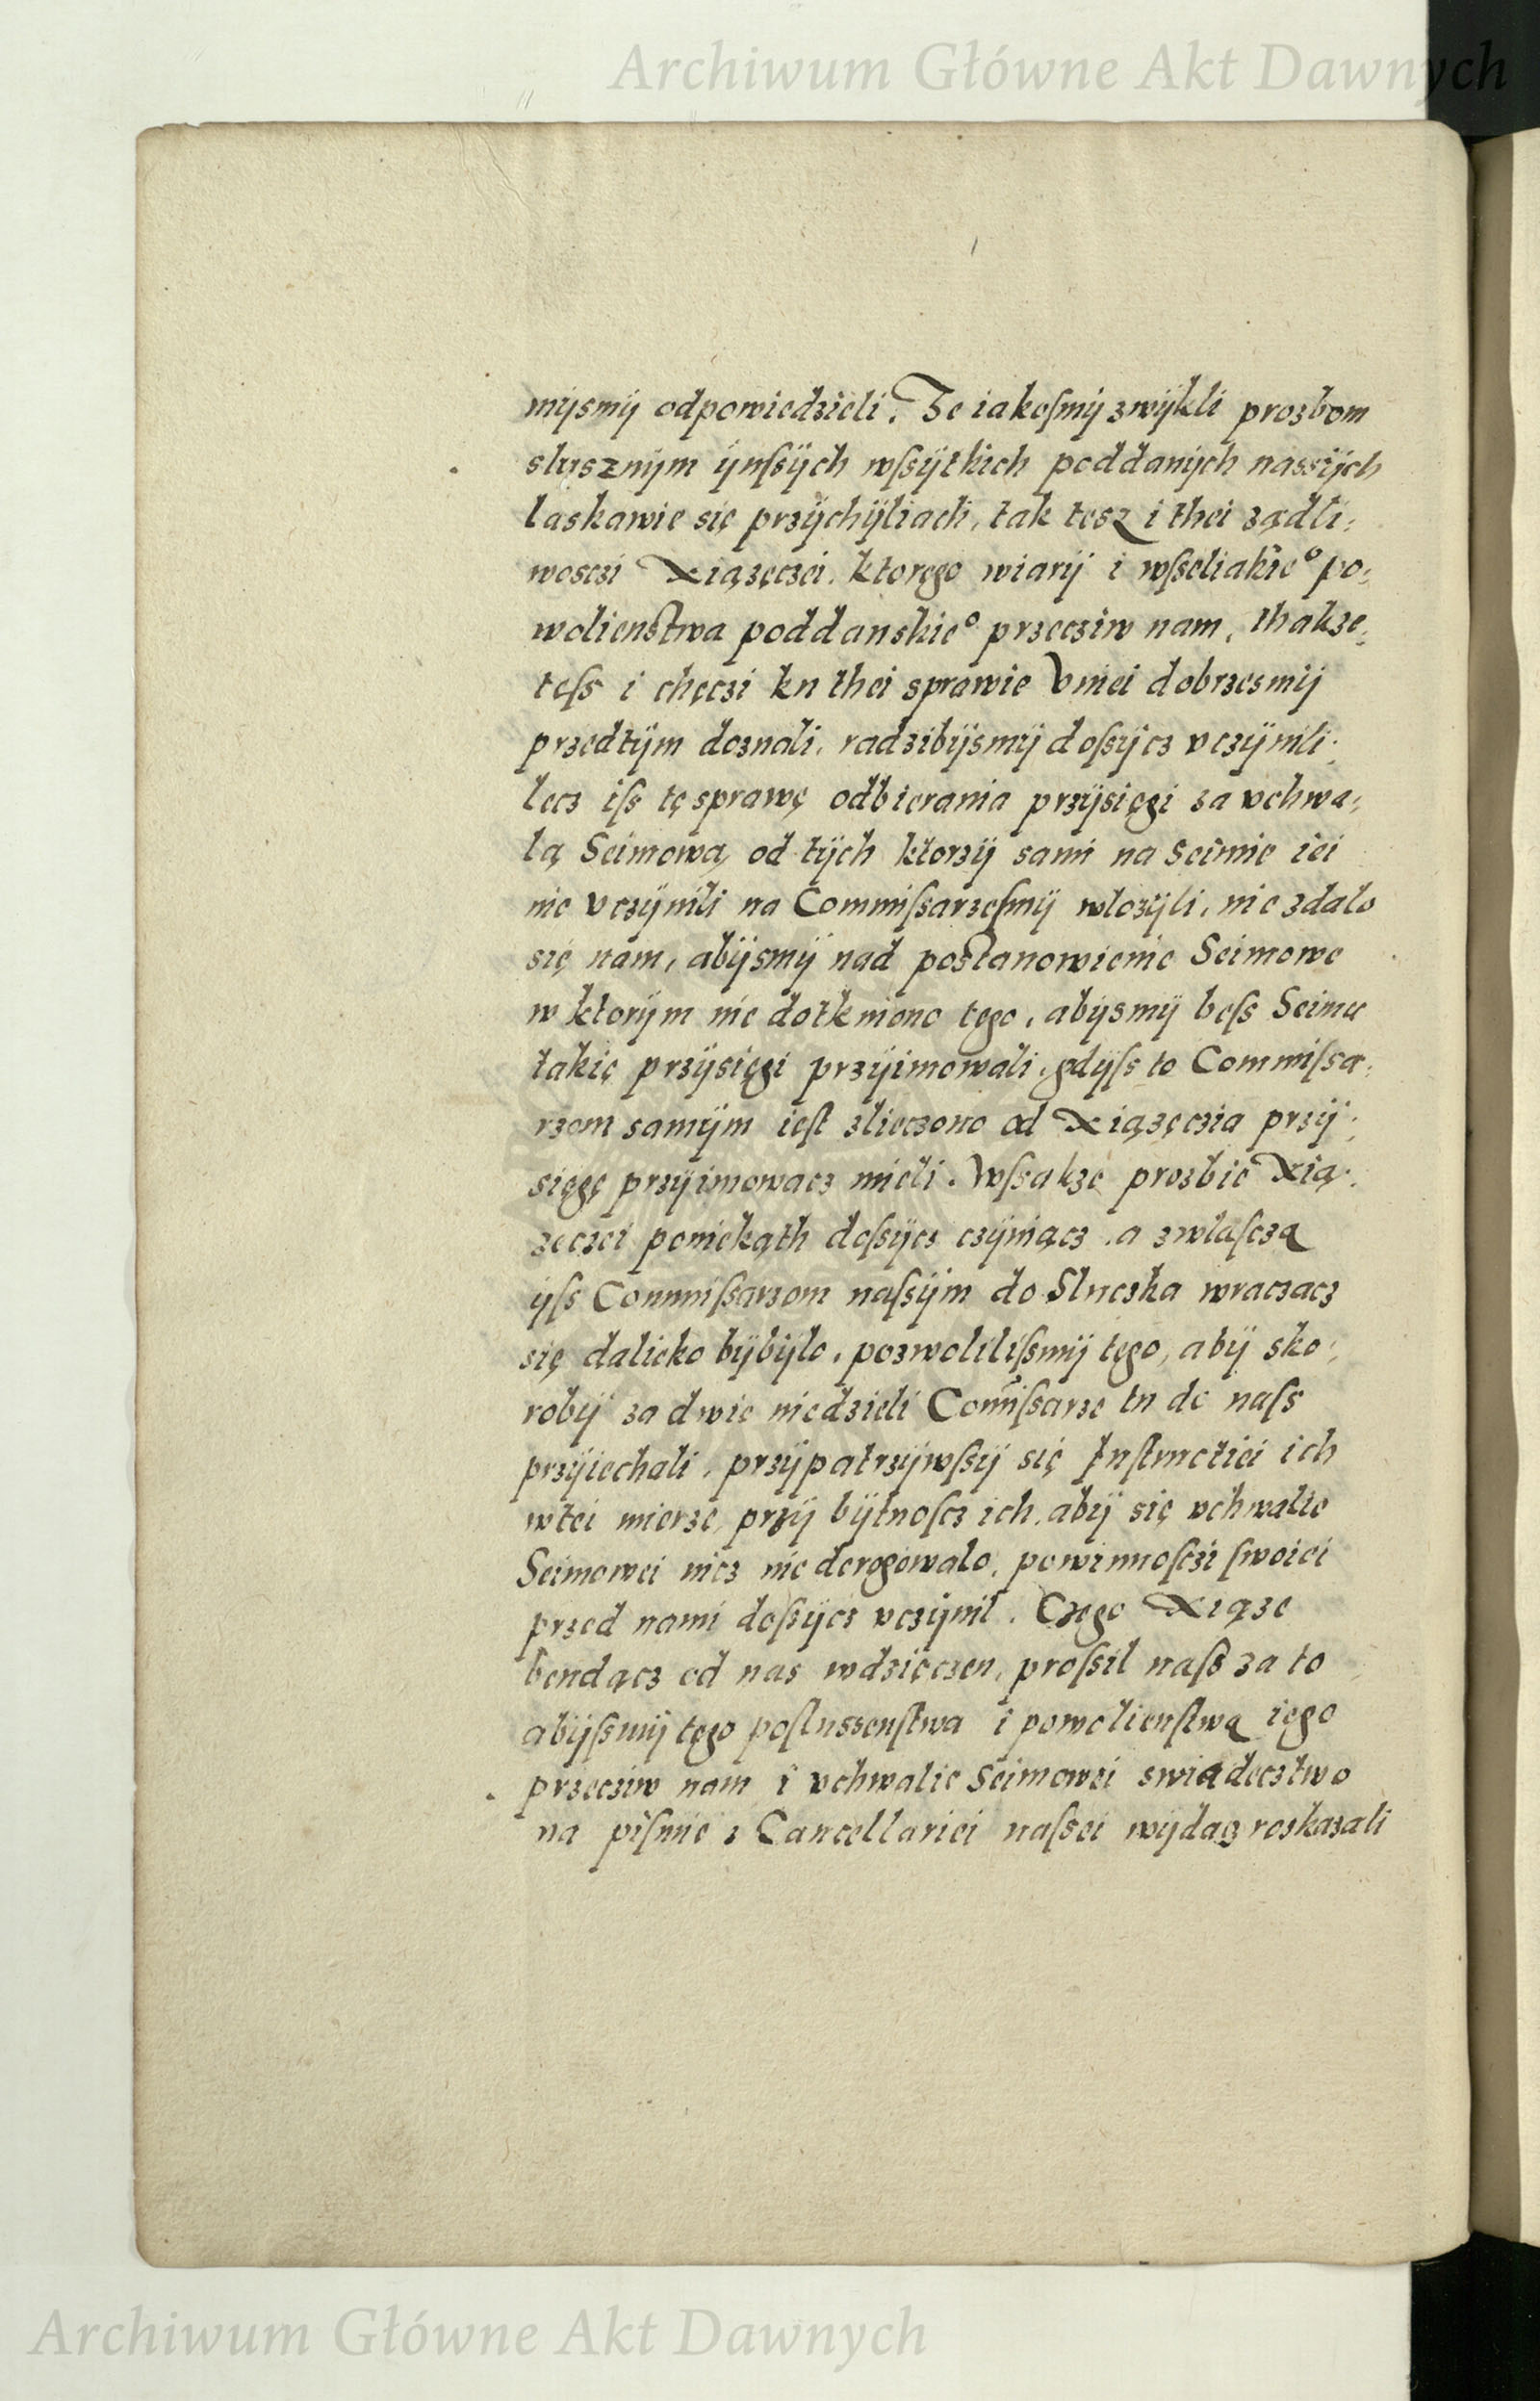 Archiwum Główne Akt Dawnych
mysmÿ odpowiedzieli. Że iakoſmÿ zwÿkli prozbom
slusznÿm ÿnſsÿch wſsÿtkich poddanÿch nassÿch
laskawie się przÿchÿliach, tak tesz i thei ządli:
woscżi Xiązęczei. ktorego wiarÿ i wſseliakie° po:
wolienstwa poddanskie° przecziw nam, thakze:
teſs i chęczi ku thei sprawie Vniei dobrzesmÿ
przedtÿm doznali, radzibÿsmÿ doſsÿcz vczÿnili:
lecz iſs tę sprawę odbierania przÿsięgi za vchwa:
lą Seimową, od tÿch ktorzÿ sami na Seimie iei
nie vczÿnili na Commiſsarzeſmÿ wlozÿli, nie zdalo
się nam, abÿsmÿ nad postanowienie Seimowe
w ktorÿm nie dotkniono tego, abÿsmÿ beſs Seimu
takię przÿsięgi przÿimowali, gdÿſs to Commiſsa:
rzom samÿm ieſt zlieczono od Xiązęczia przÿ:
sięgę przÿimowacz mieli. Wſsakze prozbie Xią:
zeczei poniekąth doſsÿcz czÿniącz, a zwlaſcza
ÿſs Commiſsarzom naſsÿm do Sluczka wraczacz
się dalieko bÿbÿlo, pozwoliliſsmÿ tego, abÿ sko:
robÿ za dwie niedzieli Com̃iſsarze tu do naſs
przÿiechali, przÿpatrzÿwſsÿ się Inſtructiei ich
wtei mierze, przÿ bÿtnoſcz ich, abÿ się vchwalie
Seimowei nicz nie derogowalo, powinnoſczi ſwoiei
przed nami doſsÿcz vczÿnil. Czego Xiąze
bendącz od nas wdzięczen, proſsil naſs za to
abÿſsmÿ tego poſlussenſtwa i powolienſtwa iego
przecziw nam i vchwalie Seimowei swiadecztwo
na piſmie z Cancellariei naſsei wÿdacz roskazali
Archiwum Główne Akt Dawnych